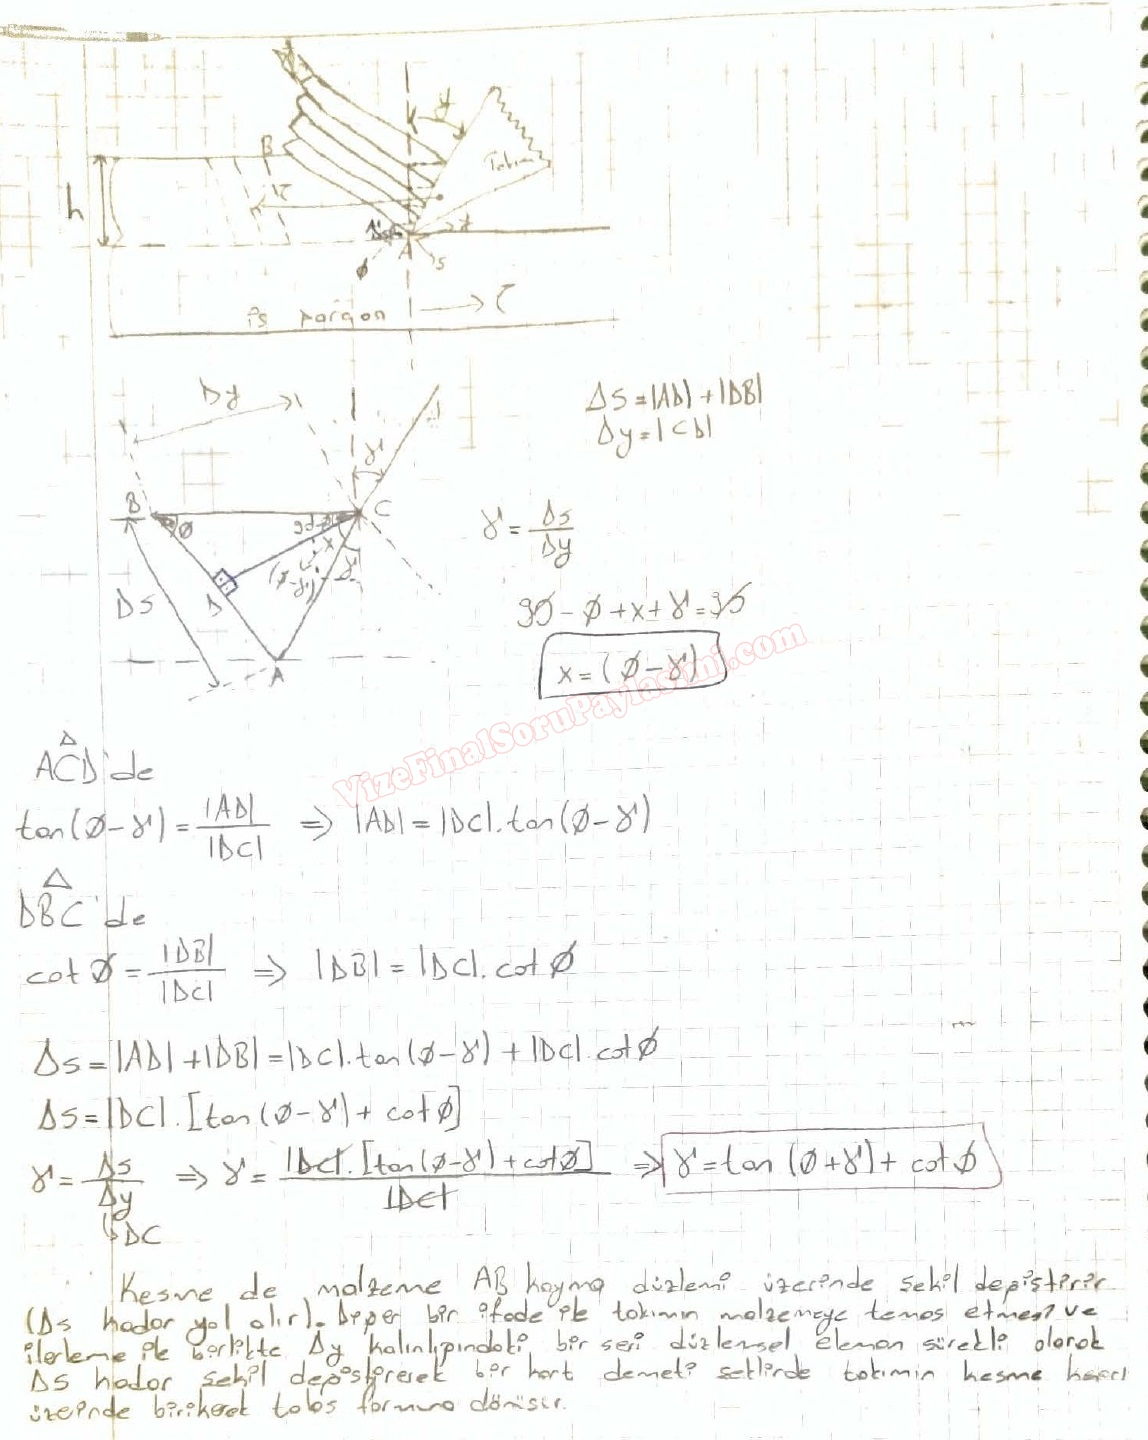 B
h
Takım
A
s
φ
iş parçası
Δy
Δs = |AD| + |DB|
Δy = |CD|
B
C
γ
φ
90-φ
x
(φ-γ)
γ
D
Δs
A
γ = Δs/Δy
90 - φ + x + γ = 90
x = (φ - γ)
VizeFinalSoruPaylasimi.com
ACD'de
tan(φ-γ) = |AD|/|DC| ⇒ |AD| = |DC|.tan(φ-γ)
DBC'de
cot φ = |DB|/|DC| ⇒ |DB| = |DC|.cot φ
Δs = |AD| + |DB| = |DC|.tan(φ-γ) + |DC|.cot φ
Δs = |DC|.[tan(φ-γ) + cot φ]
γ = Δs/Δy ⇒ γ = |DC|.[tan(φ-γ) + cot φ]/|DC| ⇒ γ = tan (φ+γ) + cot φ
↳ DC
Kesme de malzeme AB kayma düzlemi üzerinde şekil değiştirir
(Δs kadar yol alır). Diğer bir ifade ile takımın malzemeye temas etmesi ve
ilerleme ile birlikte Δy kalınlığındaki bir seri düzlemsel eleman sürekli olarak
Δs kadar şekil değiştirerek bir kart demeti şeklinde takımın kesme
üzerinde birikerek talaş formuna dönüşür.